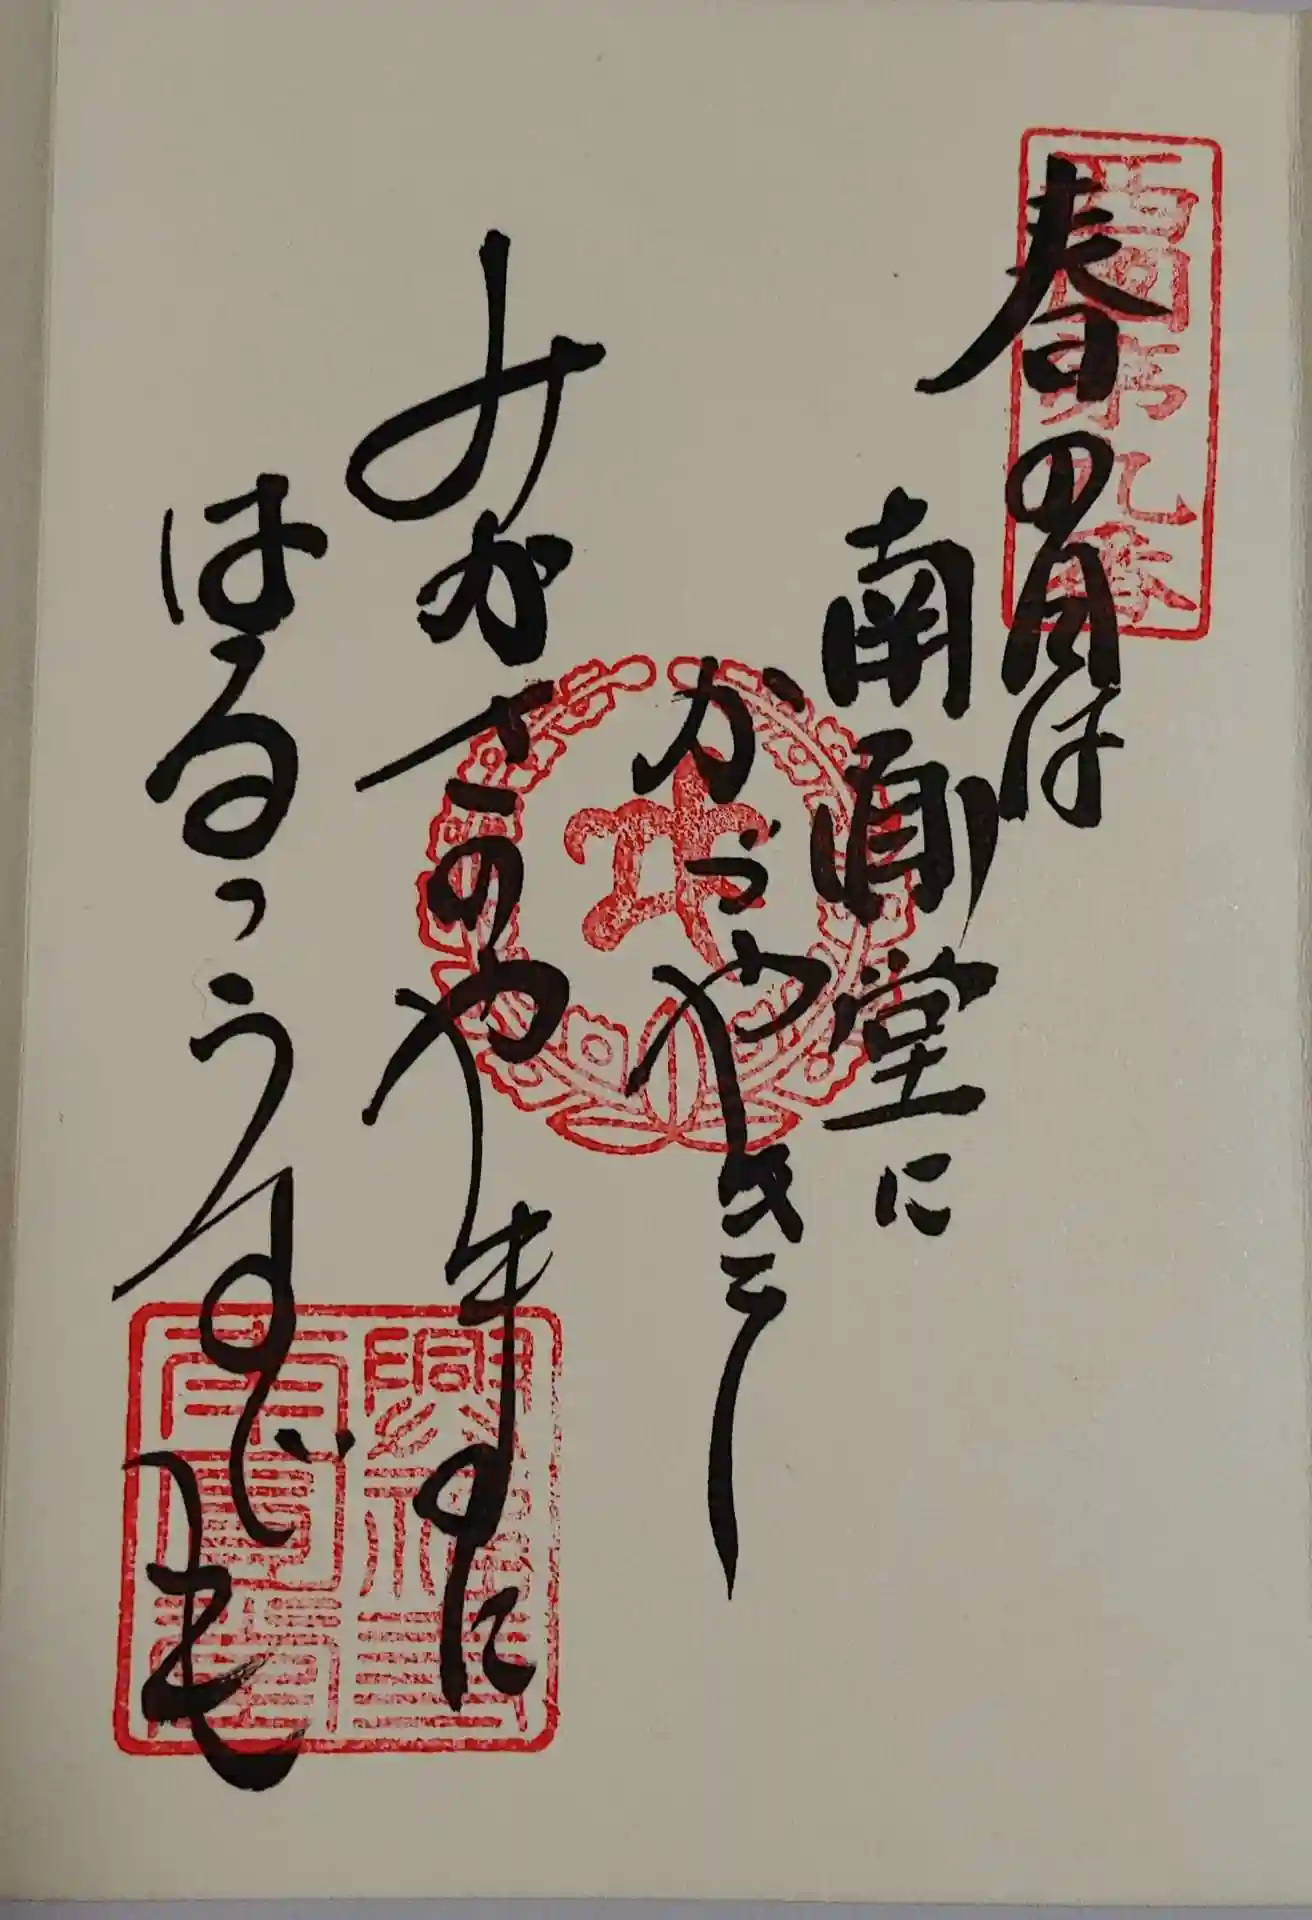 西国第九番
春の日は
南圓堂に
かゞやきて
みかさのやまに
はるゝうすぐも
興福寺
南圓堂